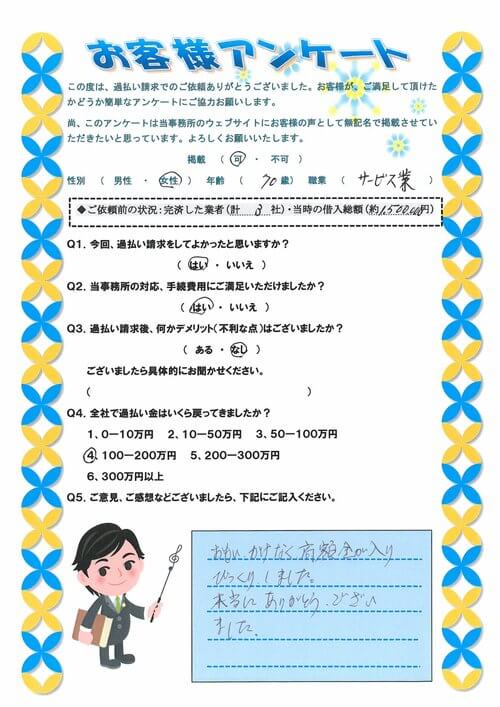 お客様アンケート
この度は、過払い請求でのご依頼ありがとうございました。お客様が、ご満足して頂けた
かどうか簡単なアンケートにご協力お願いします。
尚、このアンケートは当事務所のウェブサイトにお客様の声として無記名で掲載させてい
ただきたいと思っています。よろしくお願いいたします。
掲載 ( 可 ・ 不可 )
性別 ( 男性 ・ 女性 ) 年齢 ( 70 歳) 職業 ( サービス業 )
◆ご依頼前の状況:完済した業者(計 3 社)・当時の借入総額(約1,500,000円)
Q1. 今回、過払い請求をしてよかったと思いますか?
( はい ・ いいえ )
Q2. 当事務所の対応、手続費用にご満足いただけましたか?
( はい ・ いいえ )
Q3. 過払い請求後、何かデメリット(不利な点)はございましたか?
( ある ・ なし )
ございましたら具体的にお聞かせください。
( )
Q4. 全社で過払い金はいくら戻ってきましたか?
1、0-10万円 2、10-50万円 3、50-100万円
4、100-200万円 5、200-300万円
6、300万円以上
Q5. ご意見、ご感想などございましたら、下記にご記入ください。
おもいがけなく高額金が入り
びっくりしました。
本当にありがとうござい
ました。